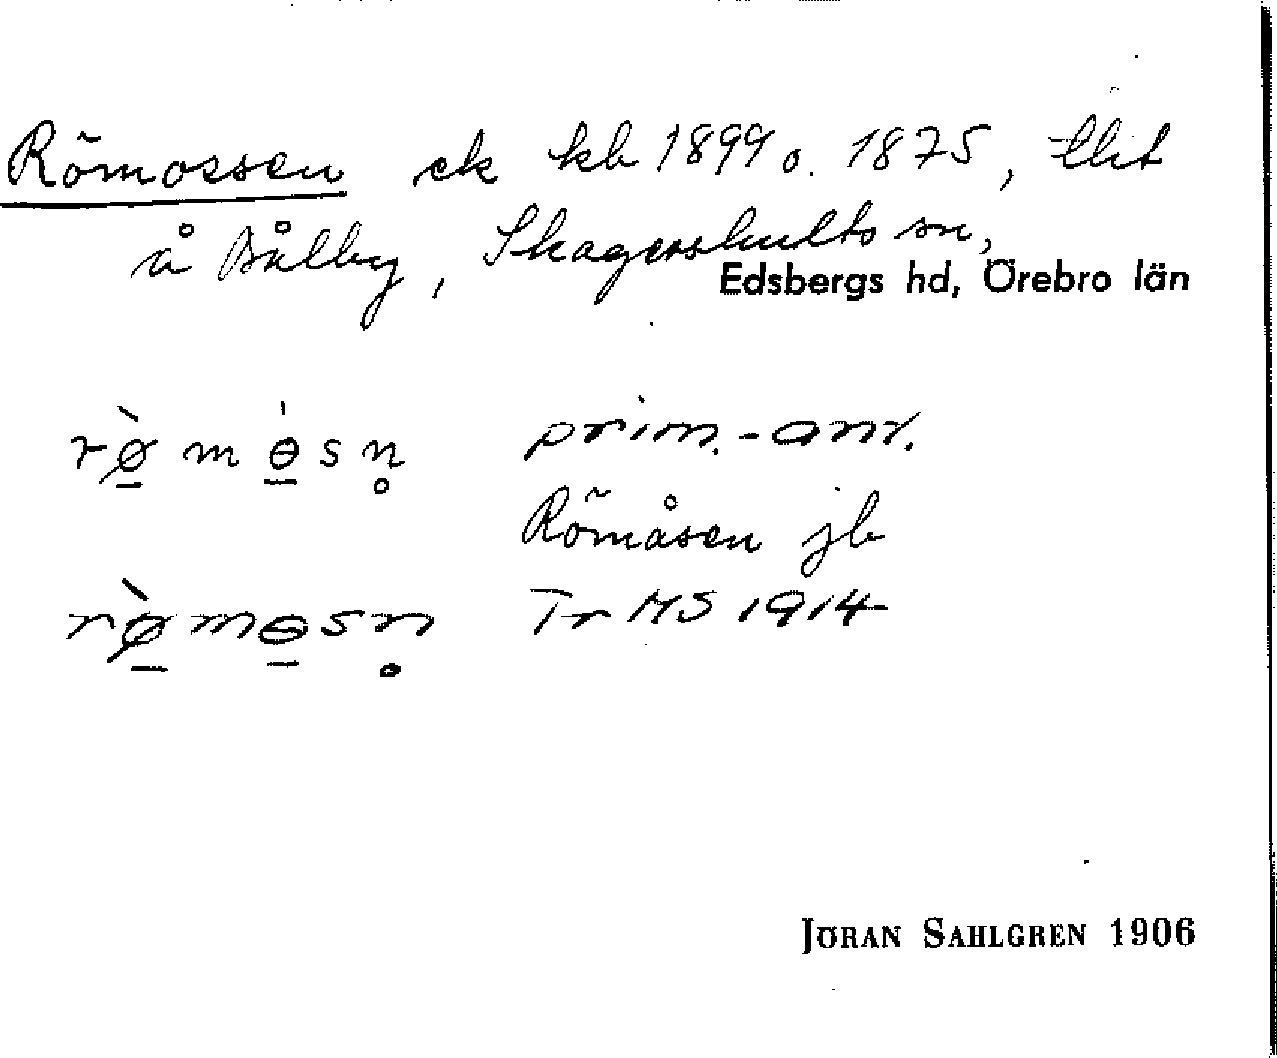 Römossen ek kb 1899 o. 1875, tlht
å Bålby, Skagershults sn,
Edsbergs hd, Örebro län
rø̠̀mɵ̠́sn̥ prim.-anv.
Römåsen jb
rø̠̀mɵ̠sn̥ Tr MS 1914
JÖRAN SAHLGREN 1906